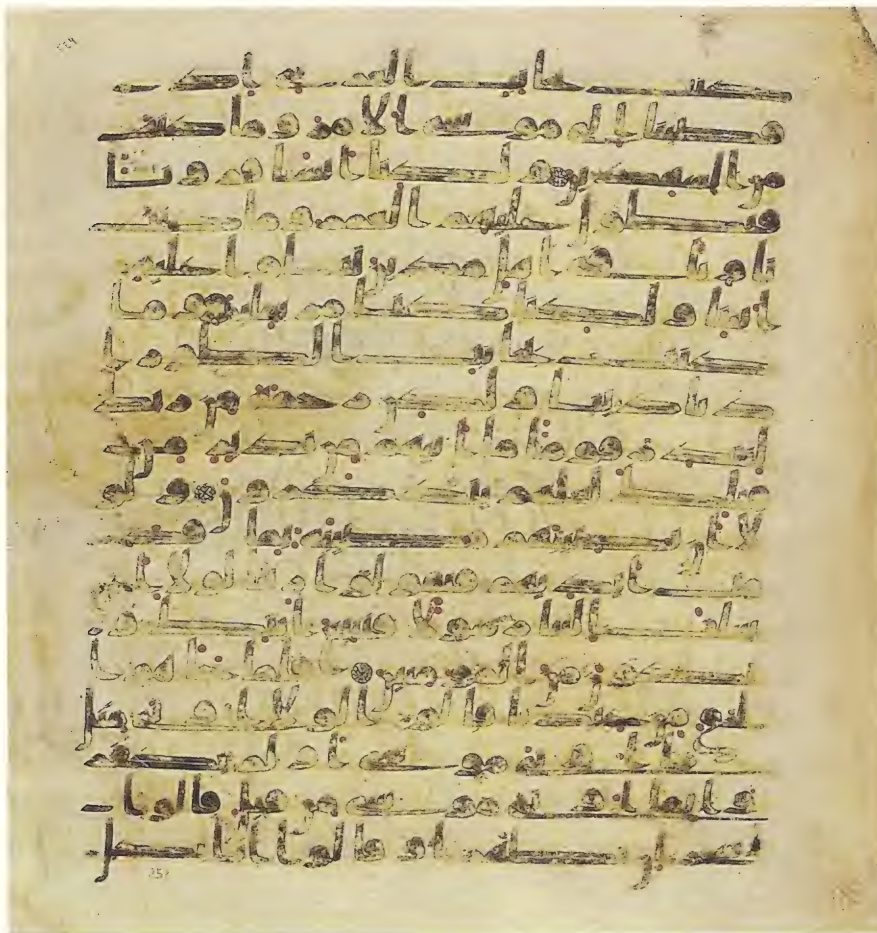 كنت بجانب الغربى اذ
قضينا الى موسى الامر وما كنت
من الشهدين ولكنا انشانا قرونا
فتطاول عليهم العمر وما كنت
ثاويا فى اهل مدين تتلوا عليهم
ايتنا ولكنا كنا مرسلين وما
كنت بجانب الطور ا
ذ نادينا ولكن رحمة من ربك
لتنذر قوما ما اتيهم من نذير من
قبلك لعلهم يتذكرون ولو
لا ان تصيبهم مصيبة بما قد
مت ايديهم فيقولوا ربنا لولا ا
رسلت الينا رسولا فنتبع ايتك و
نكون من المومنين فلما جاهم ا
لحق من عندنا قالوا لولا اوتى مثل
ما اوتى موسى اولم يكفر
وا بما اوتى موسى من قبل قالوا
سحرن تظهرا وقالوا انا بكل